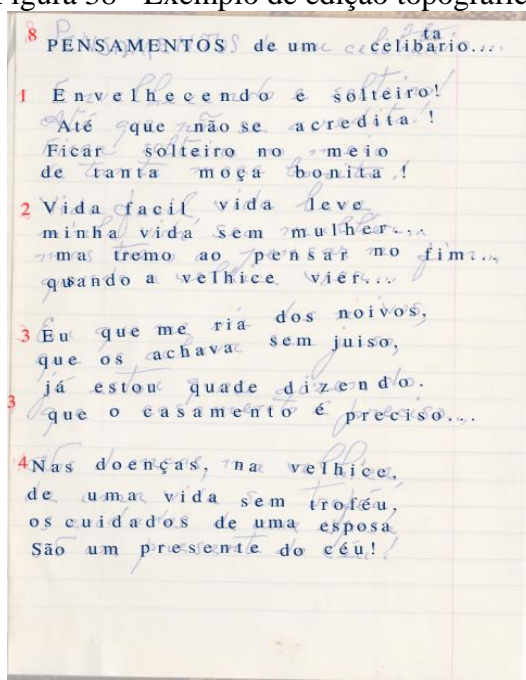 Figura 38 - Exemplo de edição topográfic
ta
8 PENSAMENTOS de um celibario...
1 Envelhecendo e solteiro!
Até que não se acredita !
Ficar solteiro no meio
de tanta moça bonita !
2 Vida facil vida leve
minha vida sem mulher...
mas tremo ao pensar no fim...
quando a velhice vier...
3 Eu que me ria dos noivos,
que os achava sem juiso,
já estou quade dizendo.
3 que o casamento é preciso...
4 Nas doenças, na velhice,
de uma vida sem troféu,
os cuidados de uma esposa
São um presente do céu!